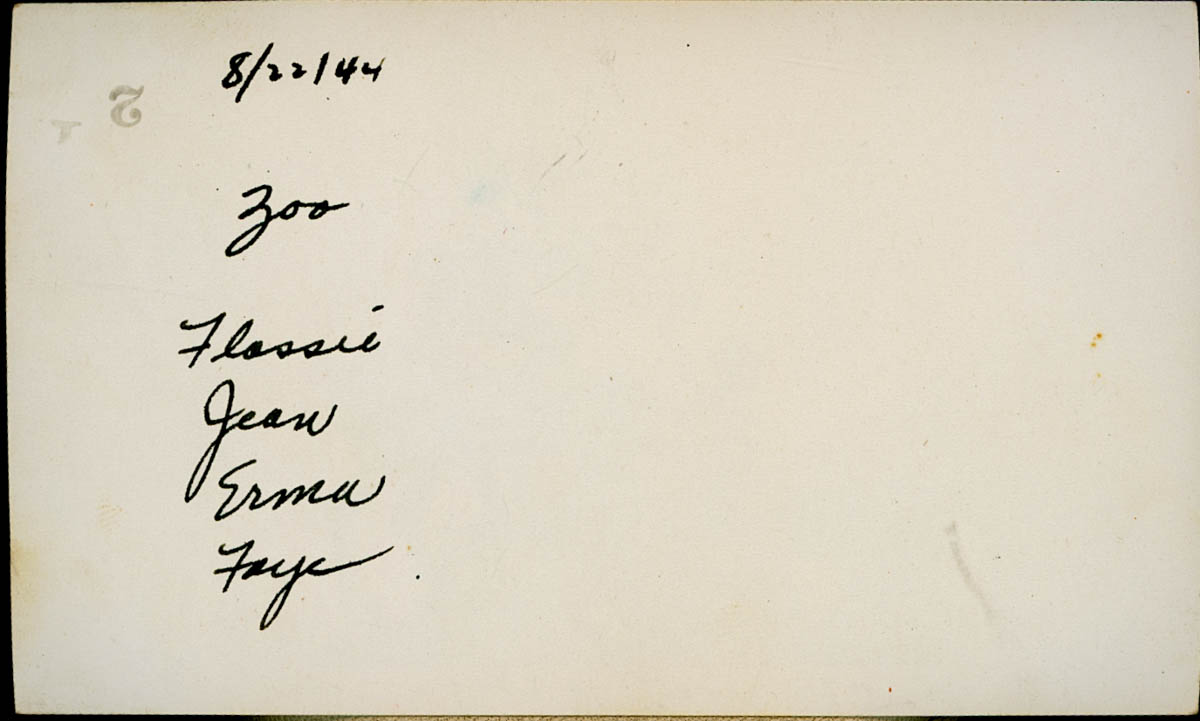 8/22/44
2
Zoo
Flossie
Jean
Erma
Faye